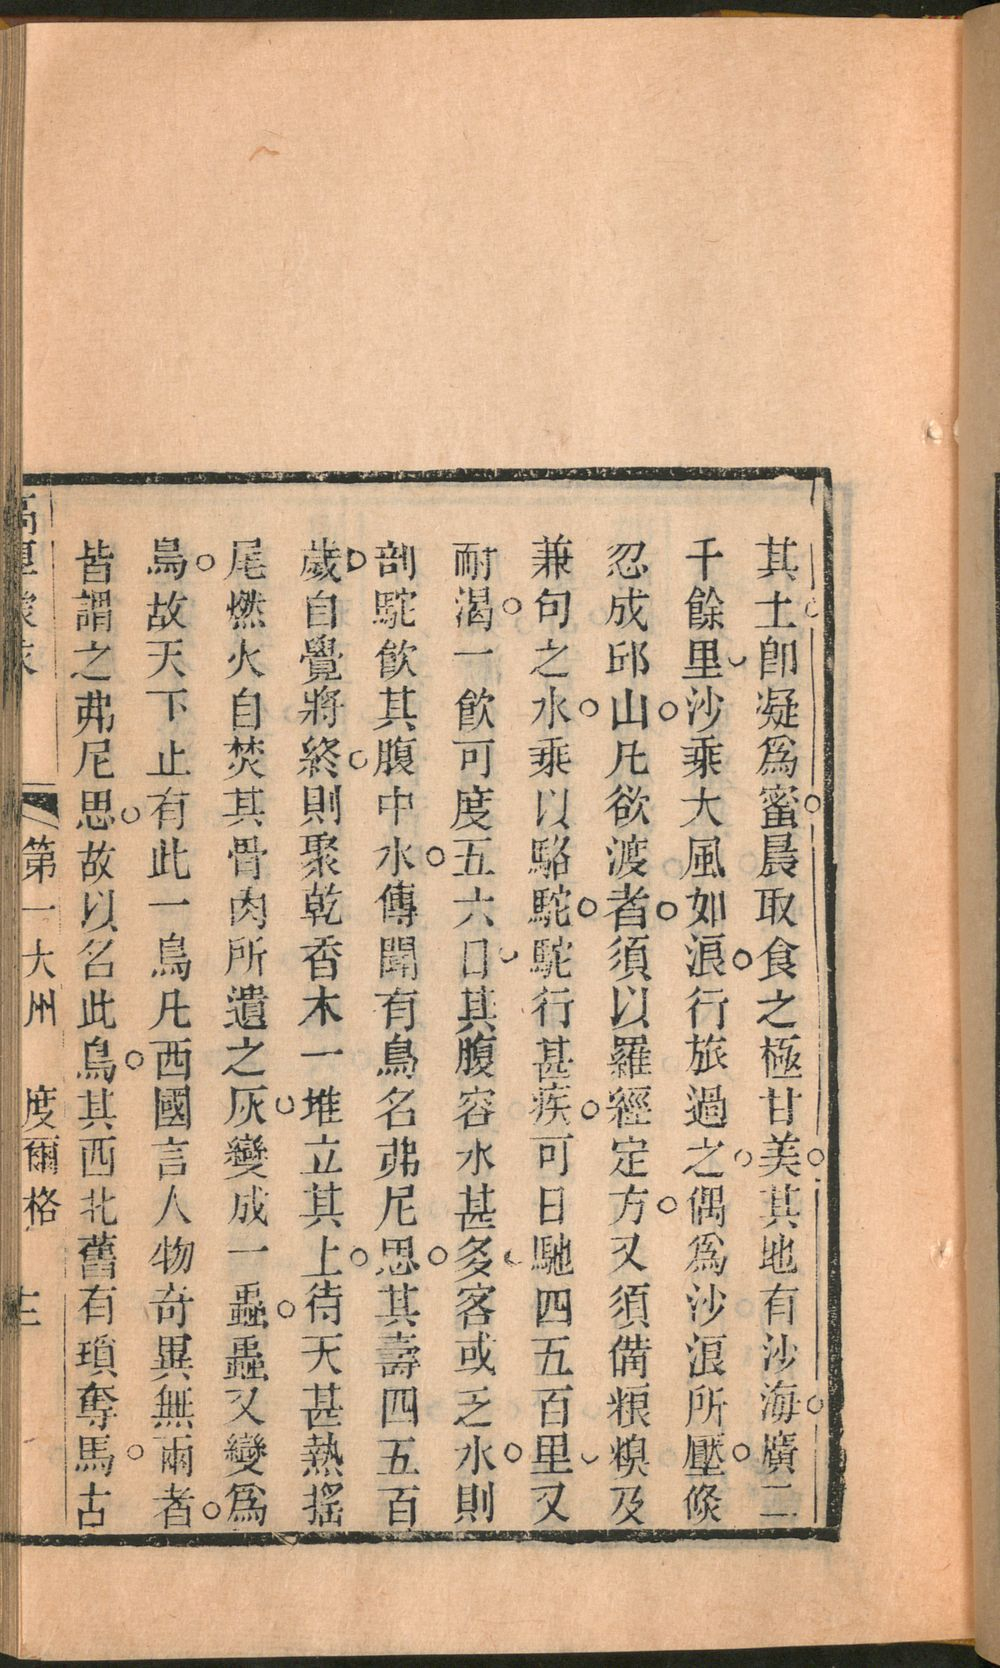 其土卽凝爲蜜晨取食之極甘美其地有沙海廣二
千餘里沙乘大風如浪行旅過之偶爲沙浪所壓倐
忍成邱山凡欲渡者須以羅經定方又須備粮糗及
兼旬之水乘以駱駝駝行甚疾可日馳四五百里又
耐渴一飮可度五六日其腹容水甚多客或乏水則
剖駝飮其腹中水傳聞有鳥名弗尼思其壽四五百
歲自覺將終則聚乾香木一堆立其上待天甚熱搖
尾燃火自焚其骨肉所遺之灰變成一蟲蟲又變爲
鳥故天下止有此一鳥凡西國言人物奇異無兩者
皆謂之弗尼思故以名此鳥其西北舊有瑣奪馬古
第一大州 度爾格